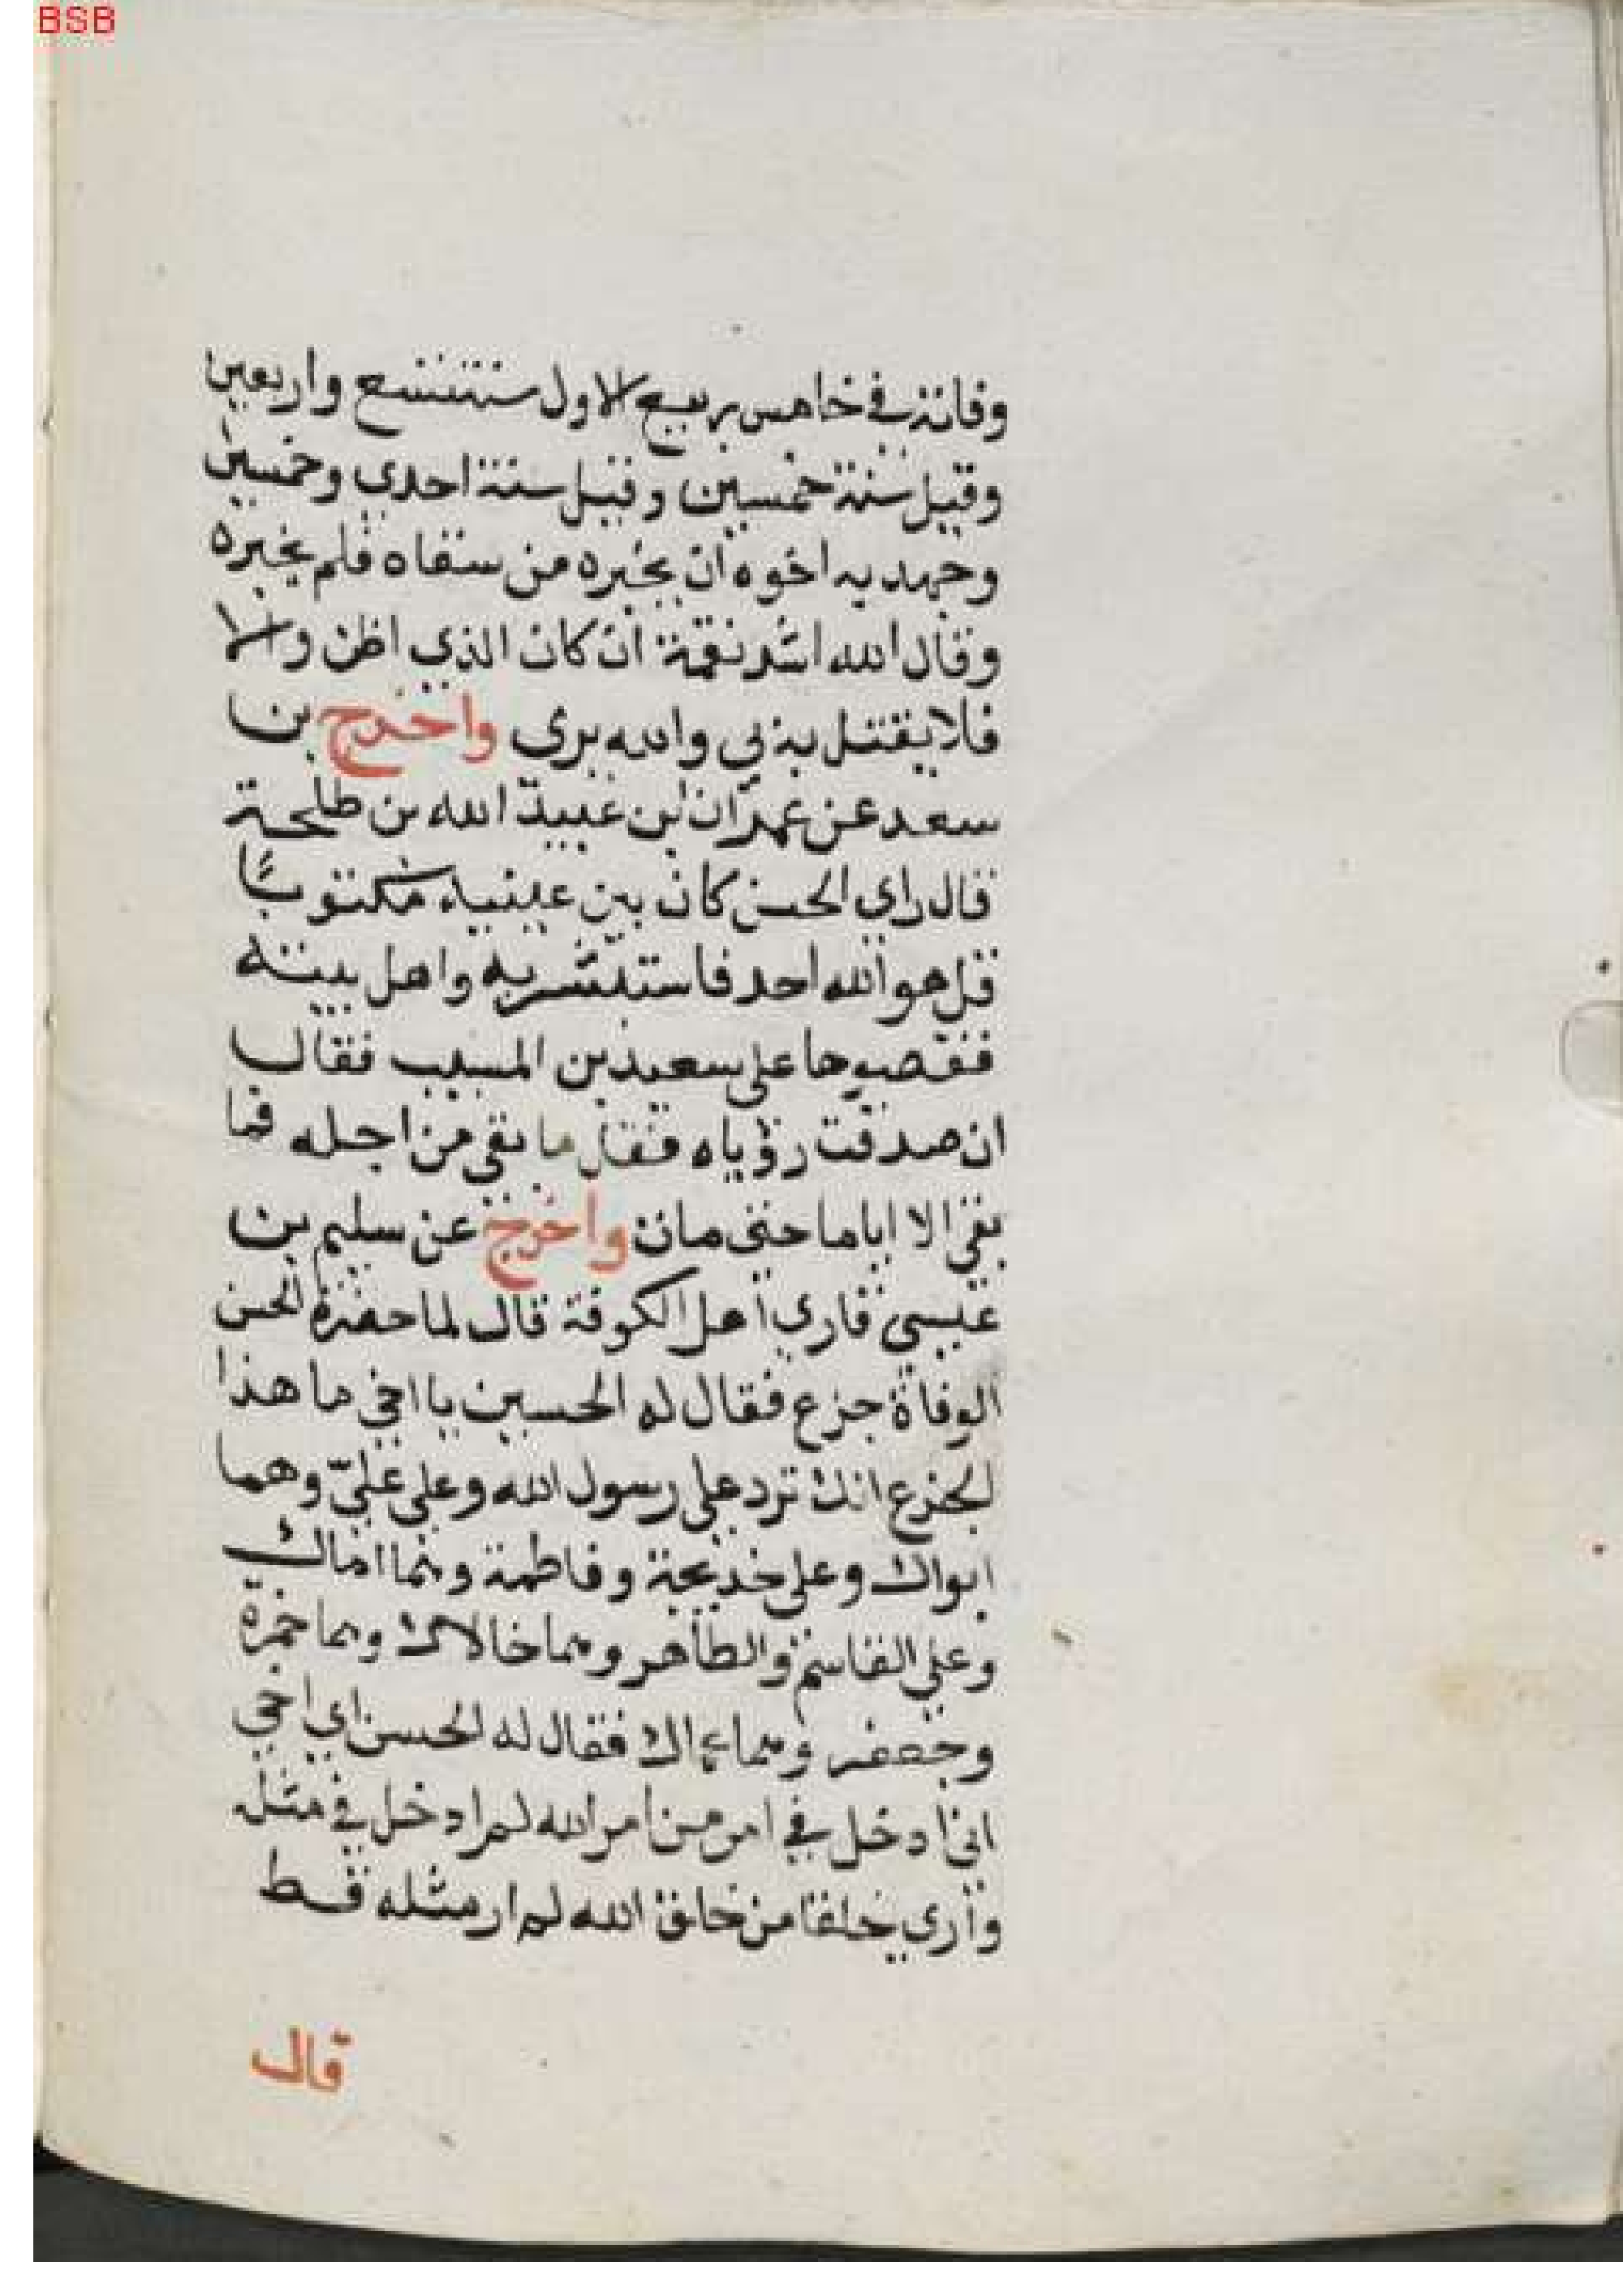 BSB
وفاته في خامس ربيع الاول سنة تسع واربعين
وقيل سنة خمسين وقيل سنة احدي وخمسين
وجهد به اخوه ان يخبره من سقاه فلم يخبره
وقال الله اشد نقمة ان كان الذي اظن والا
فلا يقتل بي والله بري واخرج بن
سعد عن عمران بن عبيد الله بن طلحة
قال راي الحسن كان بين عينيه مكتوبًا
قل هو الله احد فاستبشر به واهل بيته
فقصوها علي سعيد بن المسيب فقال
ان صدقت رؤياه فقل ما بقي من اجله فما
بقي الا اياما حتى مات واخرج عن سليم بن
عيسي قاري اهل الكوفة قال لما حضرة الحسن
الوفاة جزع فقال له الحسين يا اخي ما هذا
الجزع انك ترد علي رسول الله وعلي عليّ وهما
ابواك وعلي خديجة وفاطمة وهما اماك
وعلي القاسم والطاهر وهما خالاك وهما حمزة
وجعفر وهما عماك فقال له الحسن اي اخي
اني ادخل في امر من امر الله لم ادخل في مثله
واري خلقا من خلق الله لم ار مثله قط
قال